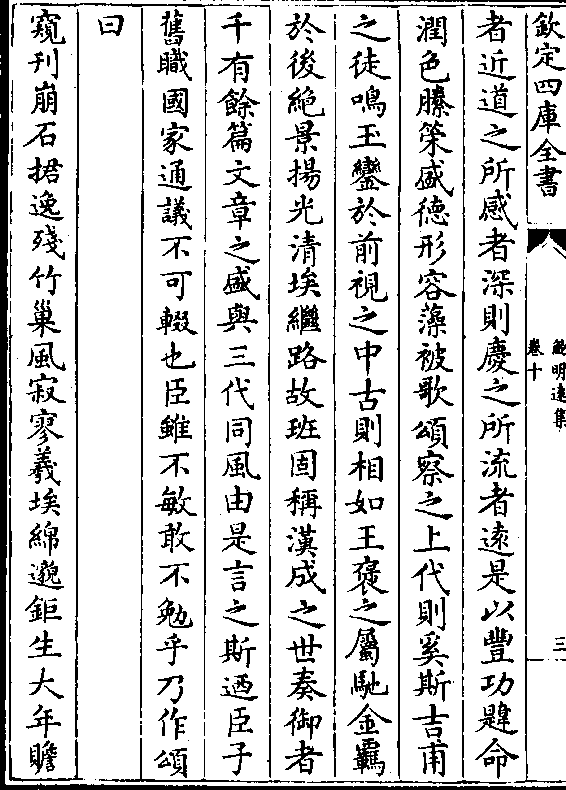 欽定四庫全書
鮑明遠集
卷十
三
者近道之所感者深則慶之所流者遠是以豐功韙命
潤色縢䇿盛德形容藻被歌頌察之上代則奚斯吉甫
之徒鳴玉鑾於前視之中古則相如王褒之屬馳金羈
於後絶景揚光清埃繼路故班固稱漢成之世奏御者
千有餘篇文章之盛與三代同風由是言之斯廼臣子
舊職國家通議不可輟也臣雖不敏敢不勉乎乃作頌
曰
窺刋崩石捃逸殘竹巢風寂寥羲埃綿邈鉅生大年贍